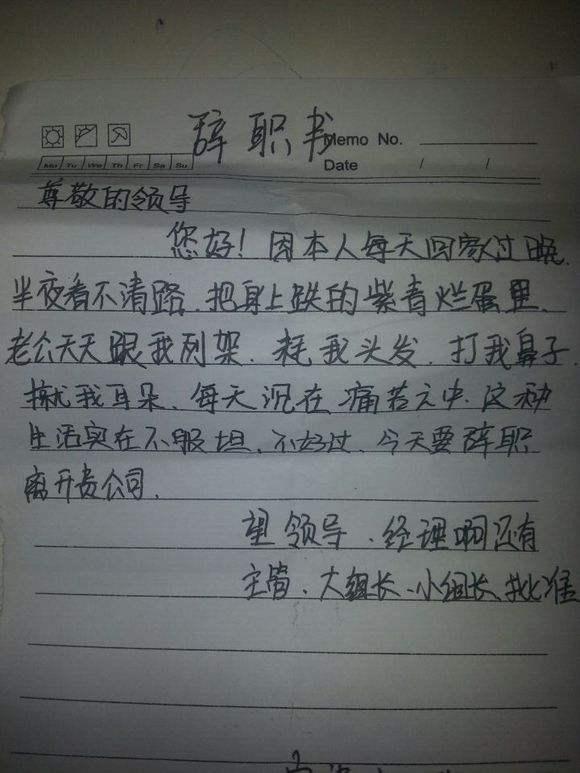 辞职书
Memo No.
Mo Tu We Th Fr Sa Su
Date / /
尊敬的领导
您好！因本人每天回家过晚.
半夜看不清路.把身上跌的紫青烂蛋里.
老公天天跟我列架.耗我头发.打我鼻子.
揪我耳朵.每天沉在痛若之中.这种
生活实在不服坦.不好过.今天要辞职
离开贵公司.
望领导、经理啊还有
主管、大组长、小组长、批准